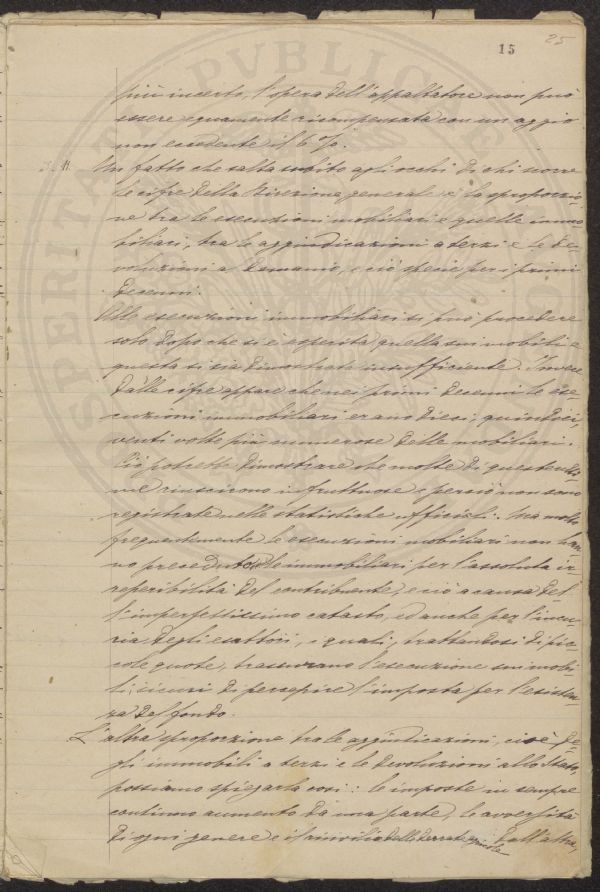 15
25
più incerto, l'opera dell'appaltatore non può
essere equamente ricompensata con un aggio
non eccedente il 6 %.
Un fatto che salta subito agli occhi di chi scorre
le cifre della Direzione generale è la sproporzio-
ne tra le esecuzioni mobiliari e quelle immo-
biliari, tra le aggiudicazioni a terzi e le de-
voluzioni al Demanio, e ciò specie per i primi
decenni.
Alle esecuzioni immobiliari si può procedere
solo dopo che si è esperita quella sui mobili e
questa si sia dimostrata insufficiente. Invece
dalle cifre appare che nei primi decenni le ese-
cuzioni immobiliari erano dieci, quindici,
venti volte più numerose delle mobiliari.
Ciò potrebbe dimostrare che molte di queste ulti-
me riuscirono infruttuose e perciò non sono
registrate nelle statistiche ufficiali. Ma molto
frequentemente le esecuzioni mobiliari non han-
no preceduto le immobiliari per l'assoluta ir-
reperibilità del contribuente, e ciò a causa del-
l'imperfettissimo catasto, ed anche per l'incu-
ria degli esattori, i quali, trattandosi di pic-
cole quote, trascurano l'esecuzione sui mobi-
li, sicuri di percepire l'imposta per l'esisten-
za del fondo.
L'altra sproporzione tra le aggiudicazioni, cioè de-
gli immobili a terzi e le devoluzioni allo Stato,
possiamo spiegarla così: le imposte in sempre
continuo aumento da una parte, le avversità
di ogni genere e il rinvilio delle derrate agricole dall'altra,